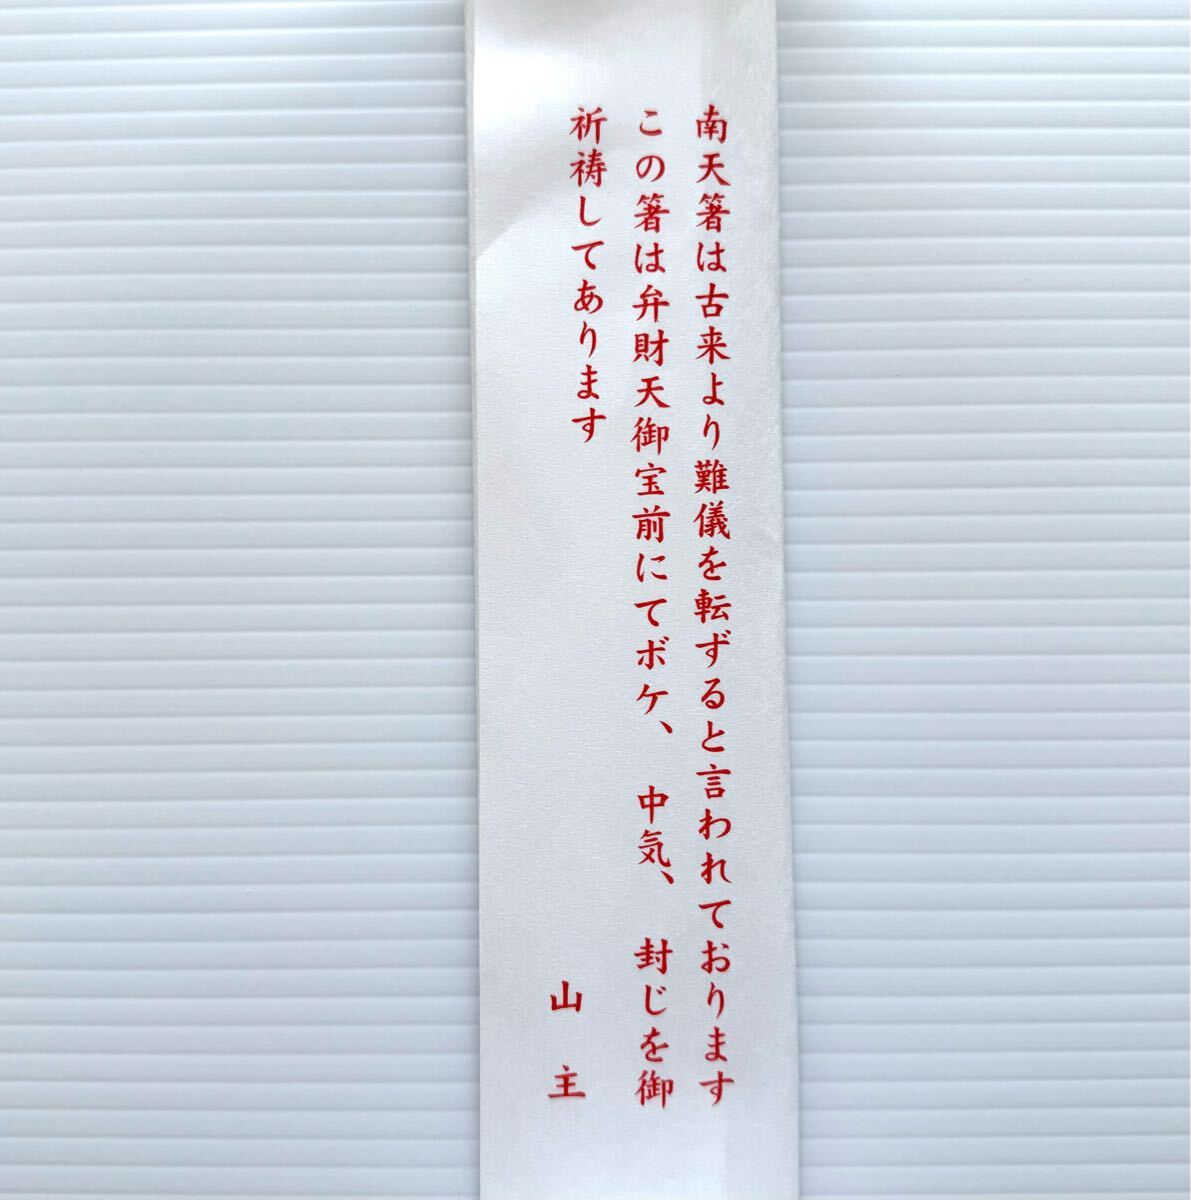 南天箸は古来より難儀を転ずると言われております
この箸は弁財天御宝前にてボケ、中気、封じを御
祈祷してあります
山主